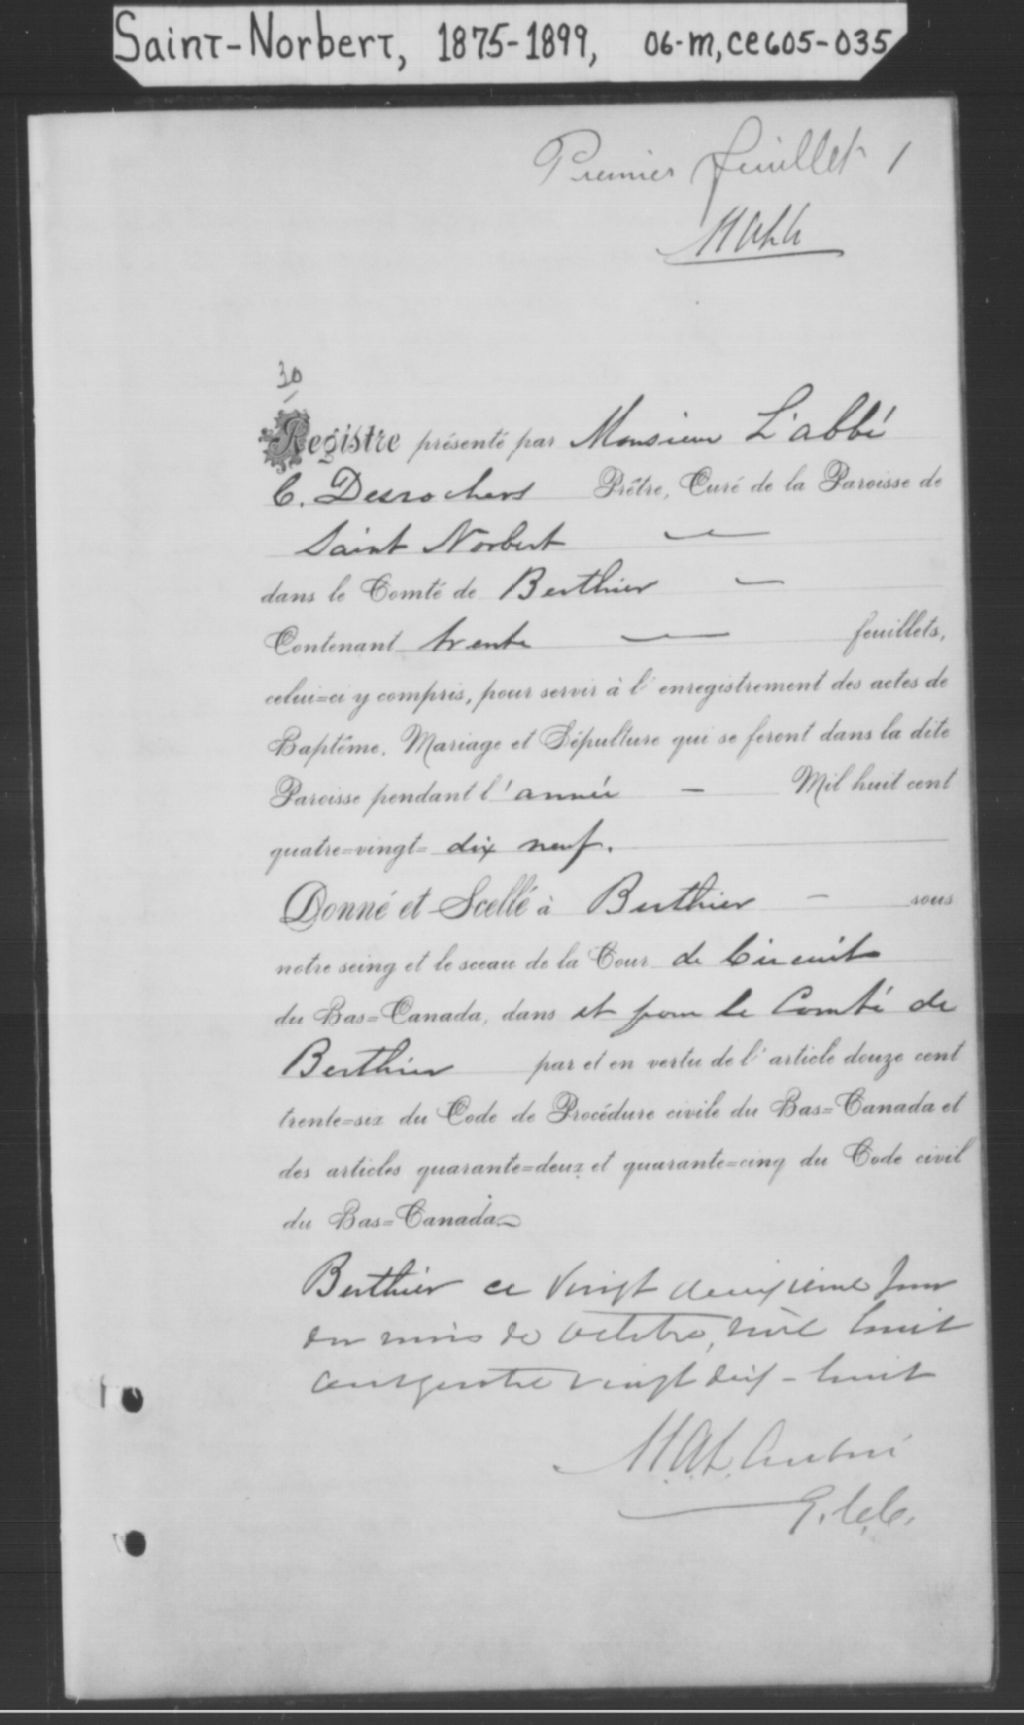 Saint-Norbert, 1875-1899, 06-M, CE605-035
Premier feuillet 1
30
Registre présenté par Monsieur L'abbé
C. Desrochers Prêtre, Curé de la Paroisse de
Saint Norbert
dans le Comté de Berthier
Contenant trente feuillets,
celui=ci y compris, pour servir à l'enregistrement des actes de
Baptême, Mariage et Sépulture qui se feront dans la dite
Paroisse pendant l'année — Mil huit cent
quatre=vingt= dix neuf.
Donné et Scellé à Berthier — sous
notre seing et le sceau de la Cour de Circuit
du Bas=Canada, dans et pour le Comté de
Berthier par et en vertu de l'article douze cent
trente=six du Code de Procédure civile du Bas=Canada et
des articles quarante=deux et quarante=cinq du Code civil
du Bas=Canada
Berthier ce vingt deuxième jour
du mois de octobre, mil huit
cent quatre vingt dix-huit
G.C.C.